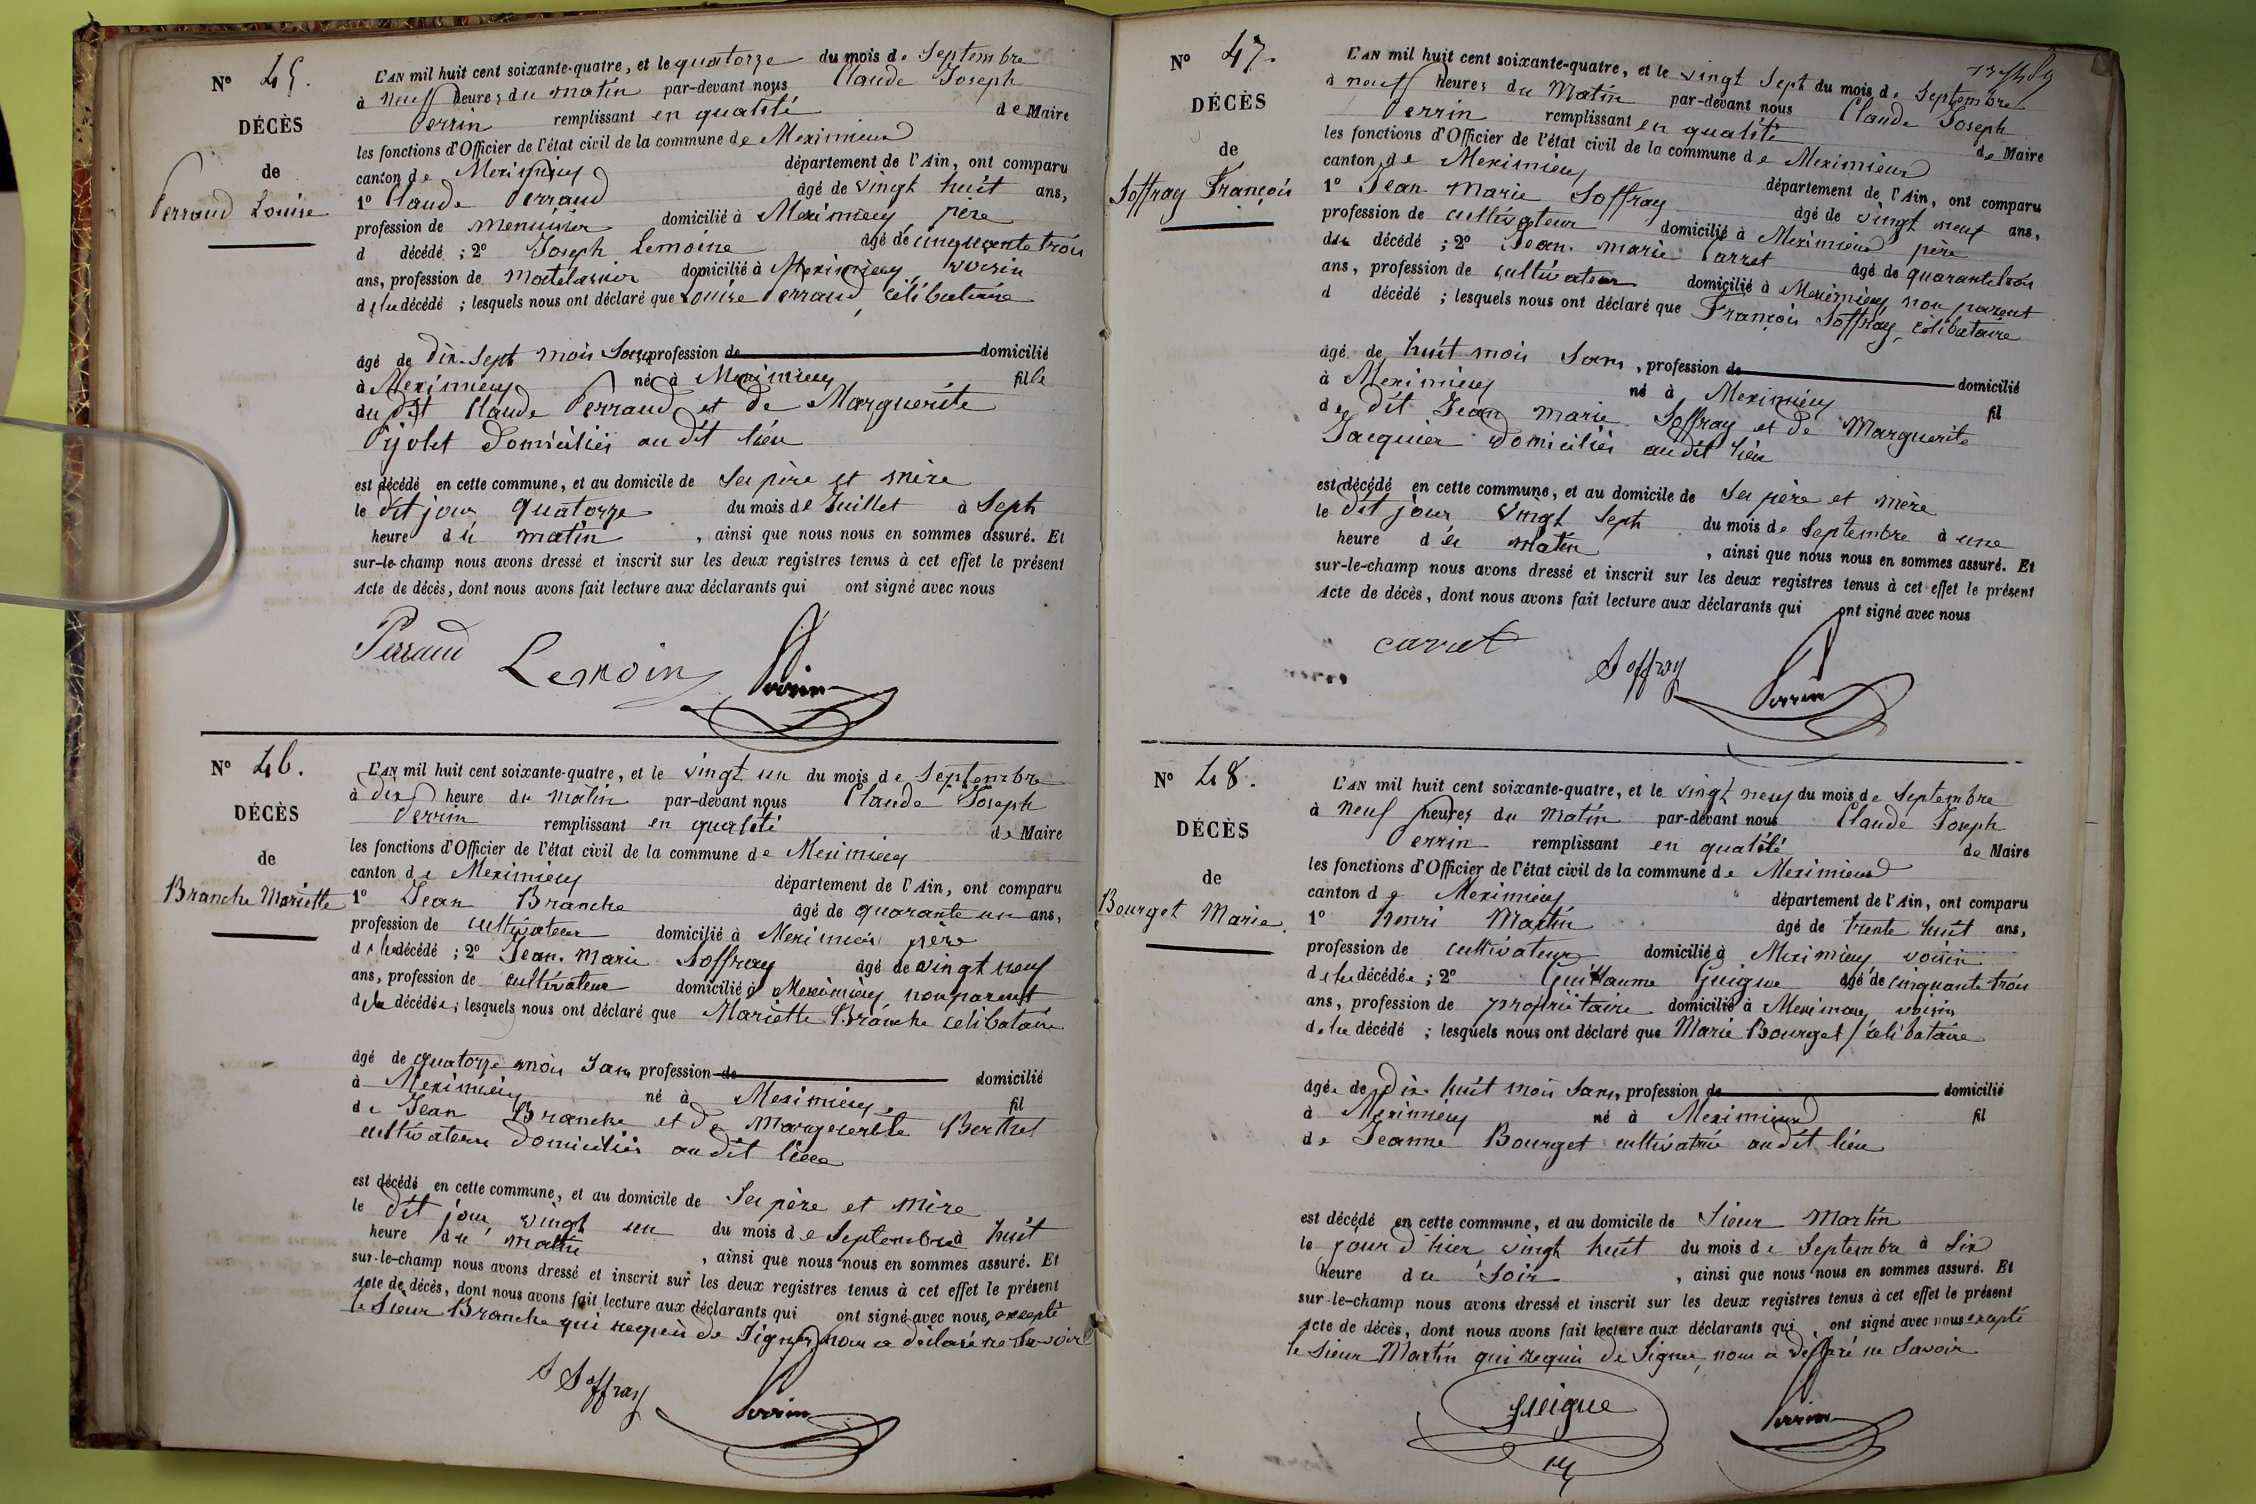 N° 45.
DÉCÈS
de
Perraud Louise
L'AN mil huit cent soixante-quatre, et le quatorze du mois de Septembre
à neuf heures du matin par-devant nous Claude Joseph
Perrin remplissant en qualité de Maire
les fonctions d'Officier de l'état civil de la commune de Meximieux
canton de Meximieux département de l'Ain, ont comparu
1° Claude Perraud âgé de vingt huit ans,
profession de menuisier domicilié à Meximieux père
d décédé ; 2° Joseph Lemoine âgé de cinquante trois
ans, profession de matelassier domicilié à Meximieux, voisin
de la décédé ; lesquels nous ont déclaré que Louise Perraud, célibataire
âgé de dix-sept mois sans profession de domicilié
à Meximieux né à Meximieux fille
du dit Claude Perraud et de Marguerite
Pijolet domiciliés au dit lieu
est décédé en cette commune, et au domicile de ses père et mère
le dit jour quatorze du mois de Juillet à Sept
heure du matin, ainsi que nous nous en sommes assuré. Et
sur-le-champ nous avons dressé et inscrit sur les deux registres tenus à cet effet le présent
Acte de décès, dont nous avons fait lecture aux déclarants qui ont signé avec nous
Perraud Lemoin Perrin
N° 46.
DÉCÈS
de
Branche Mariette
L'AN mil huit cent soixante-quatre, et le vingt un du mois de Septembre
à dix heure du matin par-devant nous Claude Joseph
Perrin remplissant en qualité de Maire
les fonctions d'Officier de l'état civil de la commune de Meximieux
canton de Meximieux département de l'Ain, ont comparu
1° Jean Branche âgé de quarante un ans,
profession de cultivateur domicilié à Meximieux père
de la décédé ; 2° Jean-Marie Soffray âgé de vingt neuf
ans, profession de cultivateur domicilié à Meximieux, non parent
de la décédée ; lesquels nous ont déclaré que Mariette Branche célibataire
âgé de quatorze mois sans profession de domicilié
à Meximieux né à Meximieux, fil
de Jean Branche et de Marguerite Berthet
cultivateurs domiciliés au dit lieu
est décédé en cette commune, et au domicile de ses père et mère
le dit jour vingt un du mois de Septembre à huit
heure du matin, ainsi que nous nous en sommes assuré. Et
sur-le-champ nous avons dressé et inscrit sur les deux registres tenus à cet effet le présent
Acte de décès, dont nous avons fait lecture aux déclarants qui ont signé avec nous, excepté
le Sieur Branche qui requis de Signer, nous a déclaré ne Savoir
Soffray Perrin
N° 47.
DÉCÈS
de
Soffray François
L'AN mil huit cent soixante-quatre, et le vingt Sept du mois de Septembre
à neuf heures du Matin par-devant nous Claude Joseph
Perrin remplissant en qualité de Maire
les fonctions d'Officier de l'état civil de la commune de Meximieux
canton de Meximieux département de l'Ain, ont comparu
1° Jean-Marie Soffray âgé de vingt neuf ans,
profession de cultivateur domicilié à Meximieux père
du décédé ; 2° Jean-Marie Carret âgé de quarante trois
ans, profession de cultivateur domicilié à Meximieux non parent
d décédé ; lesquels nous ont déclaré que François Soffray, célibataire
âgé de huit mois Sans, profession de domicilié
à Meximieux né à Meximieux fil
de dit Jean Marie Soffray et de Marguerite
Jacquier domiciliés au dit lieu
est décédé en cette commune, et au domicile de Ses père et mère
le dit jour vingt Sept du mois de Septembre à une
heure du matin, ainsi que nous nous en sommes assuré. Et
sur-le-champ nous avons dressé et inscrit sur les deux registres tenus à cet effet le présent
Acte de décès, dont nous avons fait lecture aux déclarants qui ont signé avec nous
carret Soffray Perrin
N° 48.
DÉCÈS
de
Bourget Marie
L'AN mil huit cent soixante-quatre, et le vingt neuf du mois de Septembre
à neuf heures du Matin par-devant nous Claude Joseph
Perrin remplissant en qualité de Maire
les fonctions d'Officier de l'état civil de la commune de Meximieux
canton de Meximieux département de l'Ain, ont comparu
1° henri Martin âgé de trente huit ans,
profession de cultivateur domicilié à Meximieux voisin
de la décédée ; 2° Guillaume Guigue âgé de cinquante trois
ans, profession de propriétaire domicilié à Meximieux, voisin
de la décédé ; lesquels nous ont déclaré que Marie Bourget, célibataire
âgée de dix-huit mois Sans, profession de domicilié
à Meximieux né à Meximieux fil
de Jeanne Bourget cultivatrice au dit lieu
est décédé en cette commune, et au domicile de Sieur Martin
le jour d'hier vingt huit du mois de Septembre à Six
heure du Soir, ainsi que nous nous en sommes assuré. Et
sur-le-champ nous avons dressé et inscrit sur les deux registres tenus à cet effet le présent
Acte de décès, dont nous avons fait lecture aux déclarants qui ont signé avec nous excepté
le Sieur Martin qui requis de Signer, nous a déclaré ne Savoir
guigue Perrin